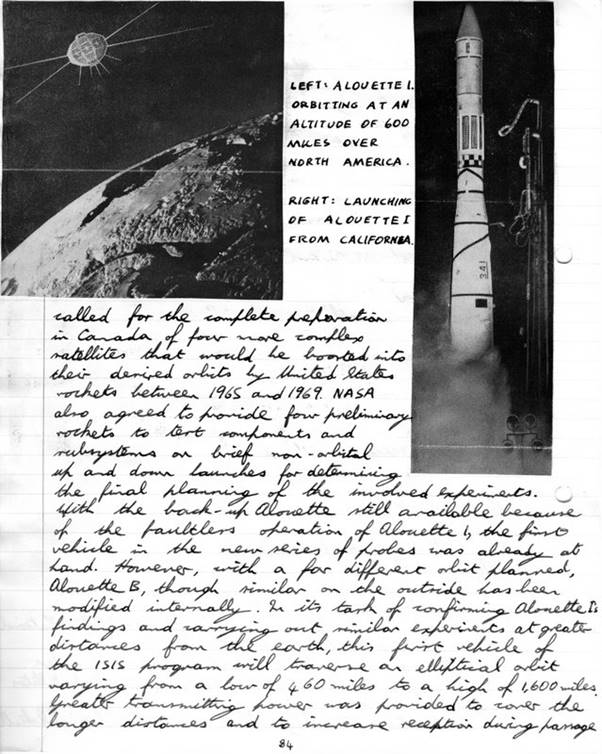 LEFT: ALOUETTE I.
ORBITTING AT AN
ALTITUDE OF 600
MILES OVER
NORTH AMERICA.
RIGHT: LAUNCHING
OF ALOUETTE I
FROM CALIFORNEA.
341
called for the complete preparation
in Canada of four more complex
satellites that would be boosted into
their desired orbits by United States
rockets between 1965 and 1969. NASA
also agreed to provide four preliminary
rockets to test components and
subsystems on brief non-orbital
up and down launches for determining
the final planning of the involved experiments.
With the back-up Alouette still available because
of the faultless operation of Alouette I, the first
vehicle in the new series of probes was already at
hand. However, with a far different orbit planned,
Alouette B, though similar on the outside has been
modified internally. In its task of confirming Alouette I's
findings and carrying out similar experients at greater
distances from the earth, this first vehicle of
the ISIS program will traverse an elliptical orbit
varying from a low of 460 miles to a high of 1,600 miles.
Greater transmitting power was provided to cover the
longer distances and to increase reception during passage
84